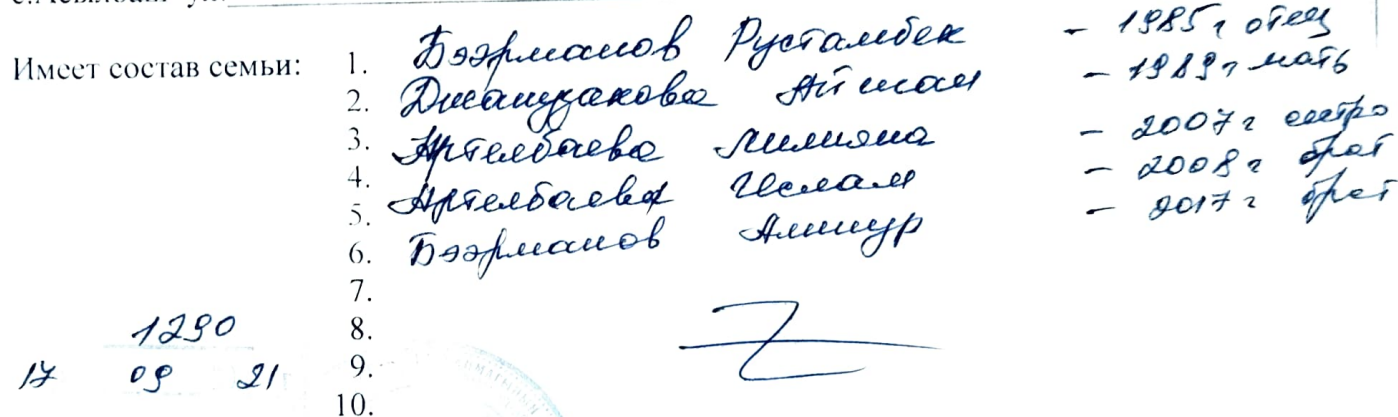 Имеет состав семьи:
1. Бээрманов Рустамбек - 1985 г отец
2. Джашуакова Айжан - 1989 г мать
3. Артелбаева Лилияна - 2007 г сестра
4. Артелбаева Ислам - 2008 г брат
5. Бээрманов Алинур - 2017 г брат
6.
7.
8.
9.
10.
1290
17 09 21